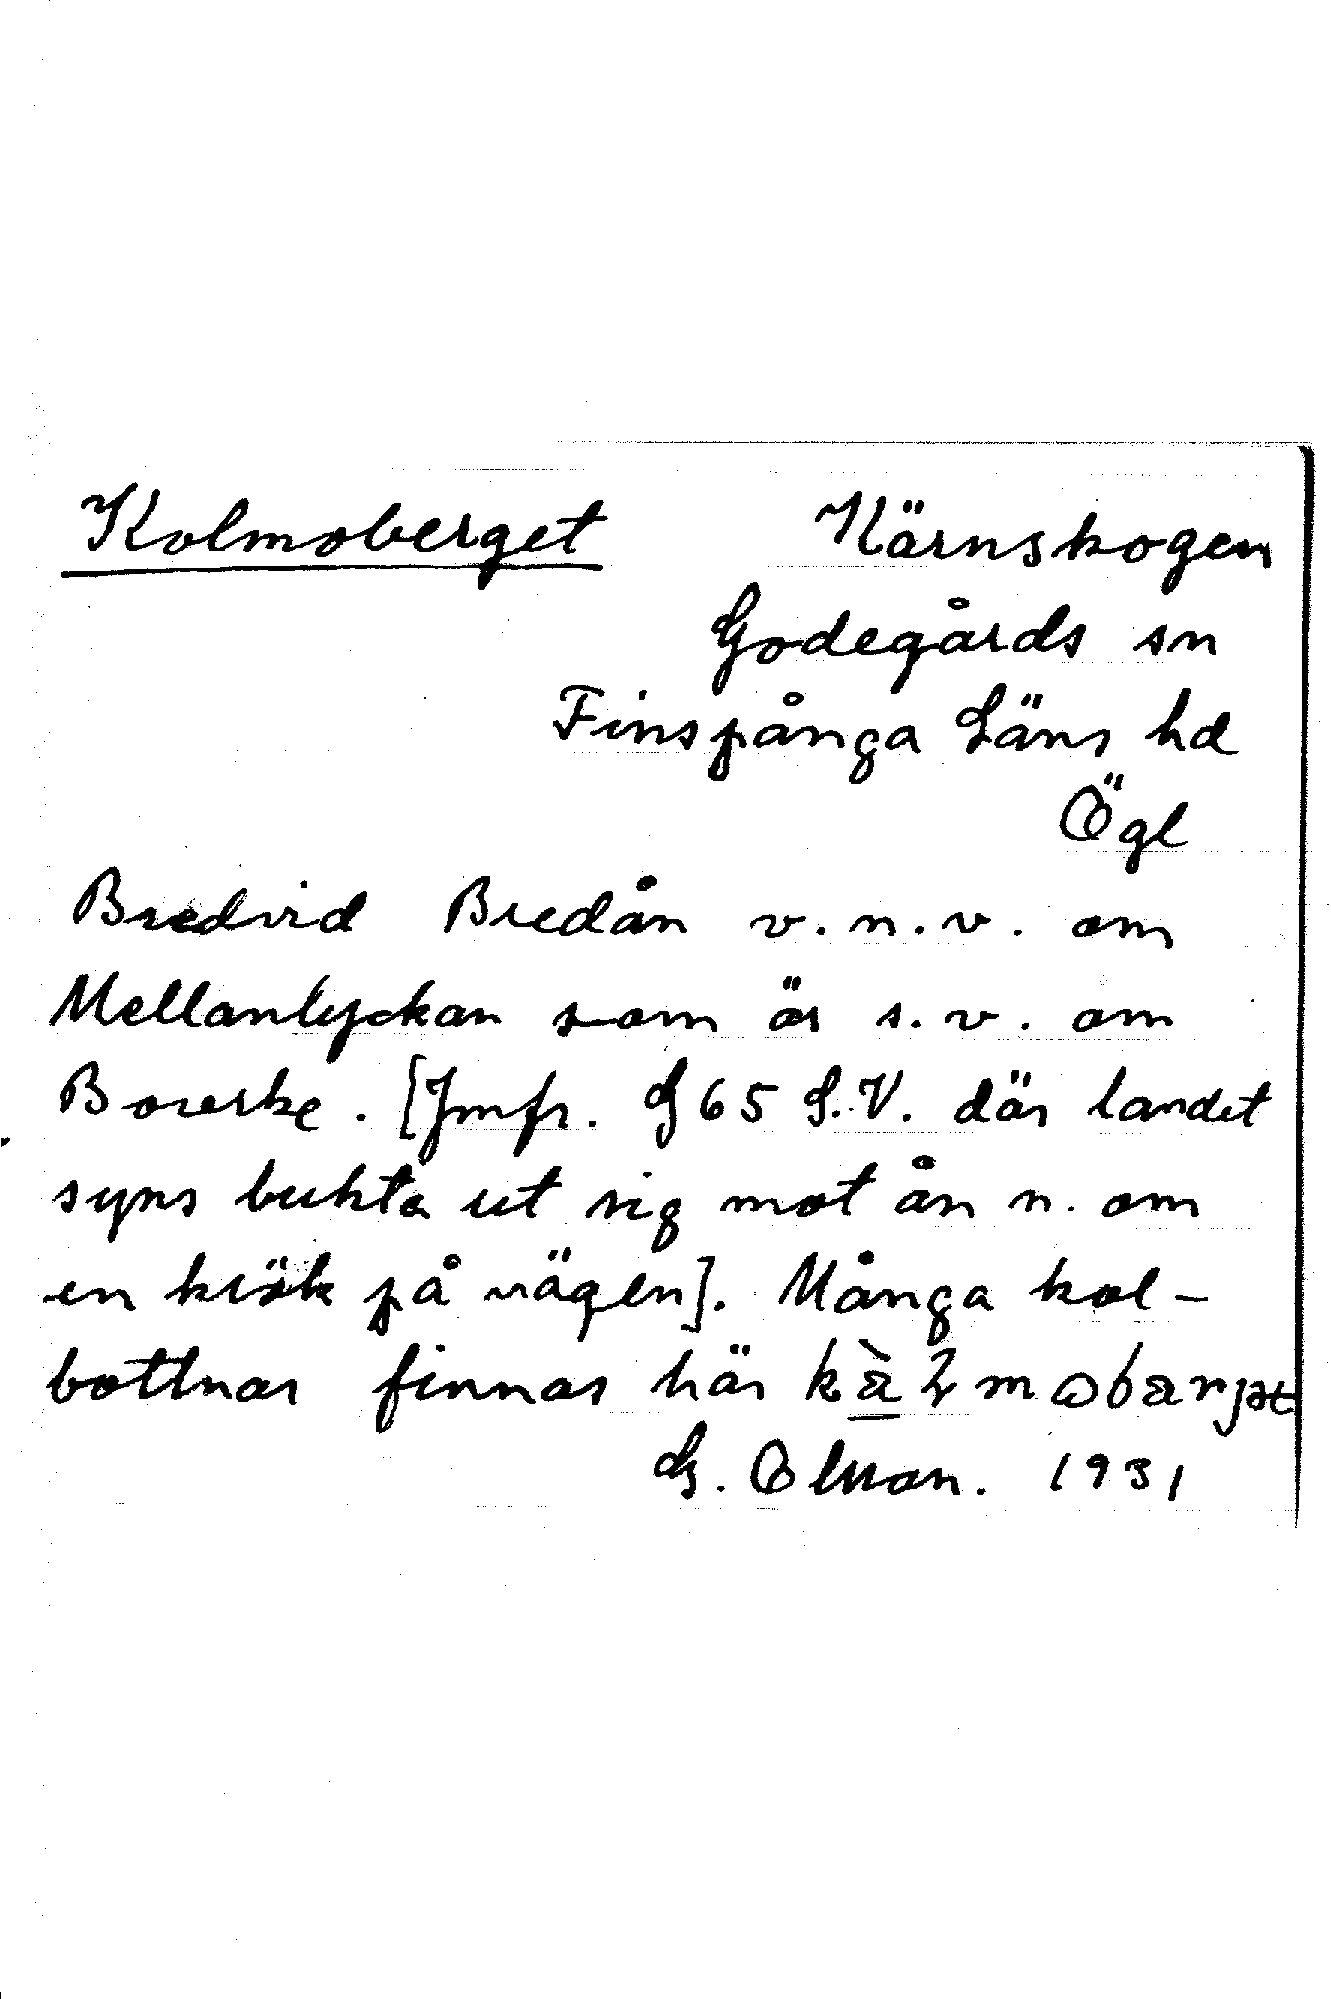 Kolmoberget Kärnskogen
Godegårds sn
Finspånga Läns hd
Ögl
Bredvid Bredån v.n.v. om
Mellanlyckan som är s.v. om
Boreske. [Jmfr. G 65 S.V. där landet
syns bukta ut sig mot ån n. om
en krök på vägen]. Många kol-
bottnar finnas här
G. 1931